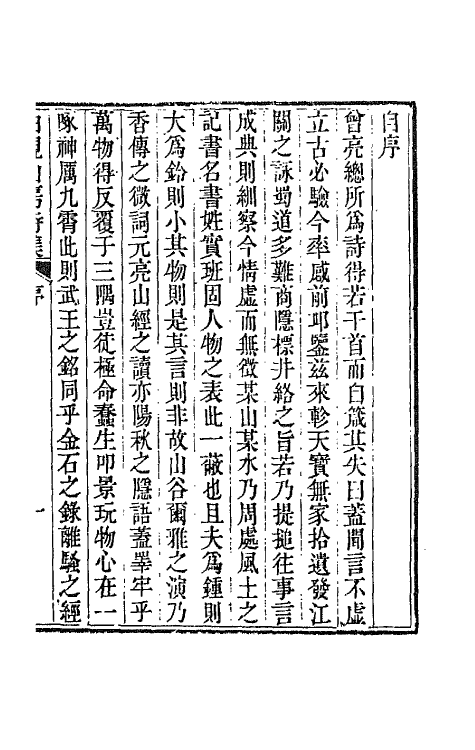 自序
曾亮總所爲詩得若干首而自箴其失曰蓋聞言不虛
立古必驗今率感前邛鑒茲來軫天寶無家拾遺發江
關之詠蜀道多難商隱標井絡之旨若乃提搥往事言
成典則紬察今情虛而無徵某山某水乃周處風土之
記書名書姓實班固人物之表此一蔽也且夫爲鍾則
大爲鈴則小其物則是其言則非故山谷爾雅之演乃
香傳之微詞元亮山經之讀亦陽秋之隱語蓋罩牢乎
萬物得反覆于三隅豈徒極命蠢生叩景玩物心在一
豚神厲九霄此則武王之銘同乎金石之錄離騷之經
山房詩集 序 一